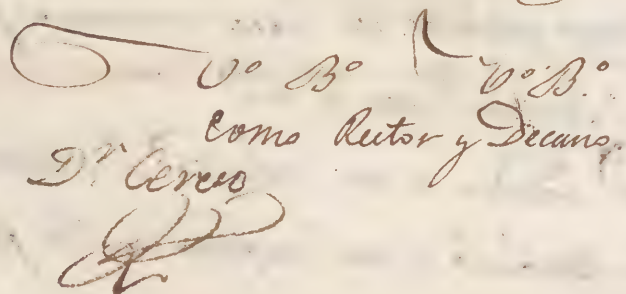 Vº Bº Vº Bº
como Rector y Decano,
Dr Cerero